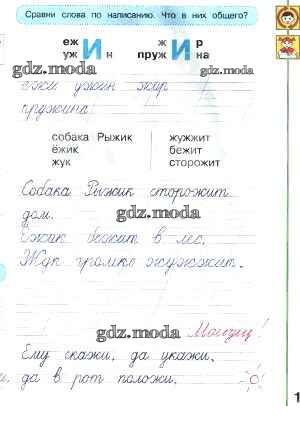 Сравни слова по написанию. Что в них общего?
еж И ж И р
уж И н пруж И на
gdz.moda gdz.moda
ежи ужин жир
пружина
собака Рыжик жужжит
ёжик бежит
жук сторожит
Собака Рыжик сторожит
дом.
gdz.moda
Ёжик бежит в лес.
Жук громко жужжит.
gdz.moda Молодец!
Ему скажи, да укажи,
да в рот положи.
gdz.moda
1